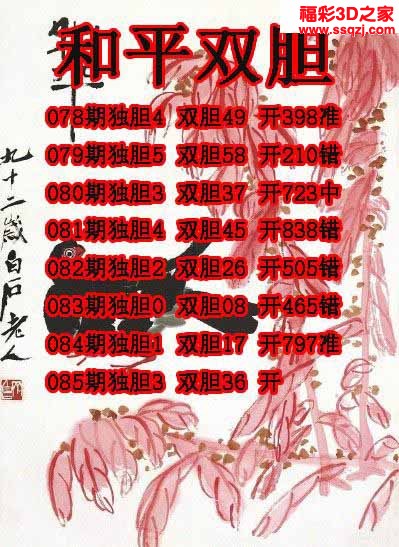 福彩3D之家
www.ssqzj.com
和平双胆
078期独胆4 双胆49 开398准
079期独胆5 双胆58 开210错
080期独胆3 双胆37 开723中
081期独胆4 双胆45 开838错
082期独胆2 双胆26 开505错
083期独胆0 双胆08 开465错
084期独胆1 双胆17 开797准
085期独胆3 双胆36 开
九十二岁白石老人